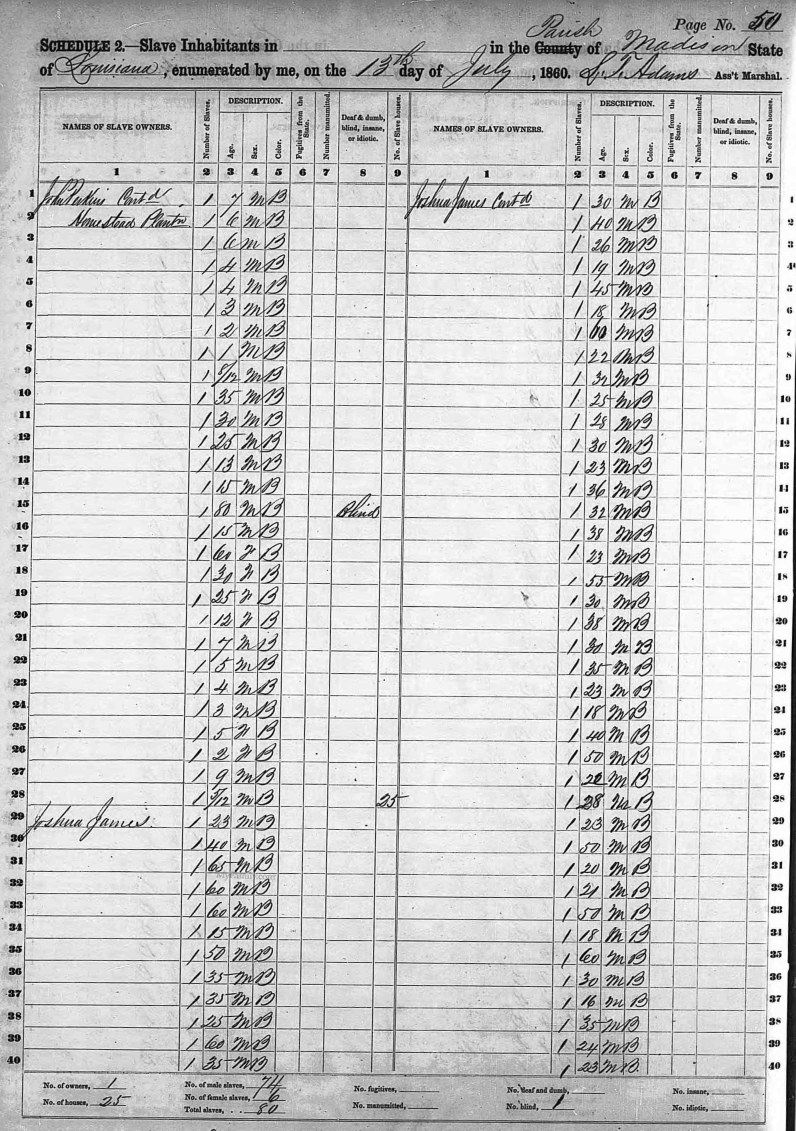 Page No. 50
SCHEDULE 2.—Slave Inhabitants in in the County Parish of Madison State
of Louisiana, enumerated by me, on the 13th day of July, 1860. L. F. Adams Ass't Marshal.
NAMES OF SLAVE OWNERS. Number of Slaves. DESCRIPTION. Age. Sex. Color. Fugitives from the State. Number manumitted. Deaf & dumb, blind, insane, or idiotic. No. of Slave houses. NAMES OF SLAVE OWNERS. Number of Slaves. DESCRIPTION. Age. Sex. Color. Fugitives from the State. Number manumitted. Deaf & dumb, blind, insane, or idiotic. No. of Slave houses.
1 2 3 4 5 6 7 8 9 1 2 3 4 5 6 7 8 9
1 John Perkins Cont'd 1 7 M B Joshua James Cont'd 1 30 M B 1
2 Homestead Plantn 1 6 M B 1 40 M B 2
3 1 6 M B 1 26 M B 3
4 1 4 M B 1 19 M B 4
5 1 4 M B 1 45 M B 5
6 1 3 M B 1 18 M B 6
7 1 2 M B 1 M B 7
8 1 1 M B 1 22 M B 8
9 1 8/12 M B 1 32 M B 9
10 1 35 M B 1 25 M B 10
11 1 30 M B 1 28 M B 11
12 1 25 M B 1 30 M B 12
13 1 13 M B 1 23 M B 13
14 1 15 M B 1 36 M B 14
15 1 80 M B Blind 1 32 M B 15
16 1 15 M B 1 38 M B 16
17 1 60 F B 1 23 M B 17
18 1 30 F B 1 55 M B 18
19 1 25 F B 1 30 M B 19
20 1 12 F B 1 38 M B 20
21 1 7 M B 1 30 M B 21
22 1 5 M B 1 35 M B 22
23 1 4 M B 1 23 M B 23
24 1 3 M B 1 18 M B 24
25 1 5 F B 1 40 M B 25
26 1 2 F B 1 50 M B 26
27 1 9 M B 1 M B 27
28 1 5/12 M B 25 1 28 M B 28
29 Joshua James 1 23 M B 1 23 M B 29
30 1 40 M B 1 50 M B 30
31 1 65 M B 1 20 M B 31
32 1 60 M B 1 21 M B 32
33 1 60 M B 1 50 M B 33
34 1 15 M B 1 18 M B 34
35 1 50 M B 1 60 M B 35
36 1 35 M B 1 30 M B 36
37 1 35 M B 1 16 M B 37
38 1 25 M B 1 35 M B 38
39 1 60 M B 1 24 M B 39
40 1 35 M B 1 23 M B 40
No. of owners, 1 No. of male slaves, 74 No. fugitives, No. deaf and dumb, No. insane,
No. of houses, 25 No. of female slaves, 6 No. manumitted, No. blind, 1 No. idiotic,
Total slaves, 80